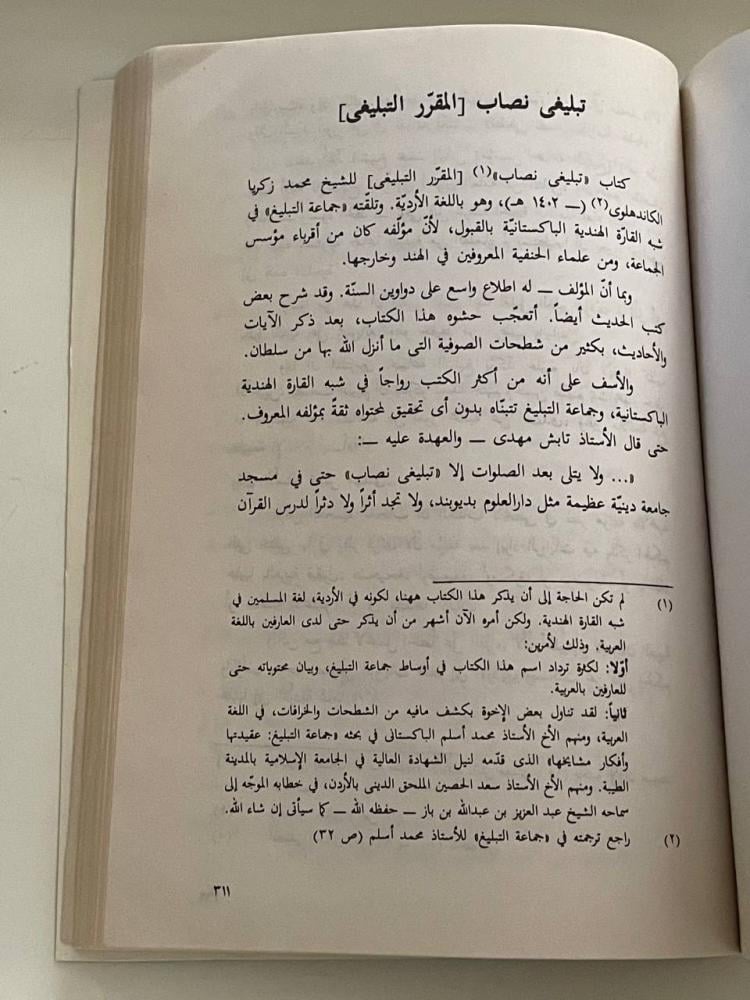 تبليغى نصاب [المقرّر التبليغى]
كتاب «تبليغى نصاب»(١) [المقرّر التبليغى] للشيخ محمد زكريا
الكاندهلوى(٢) (ــ ١٤٠٢ هـ)، وهو باللغة الأرديّة. وتلقّته «جماعة التبليغ» في
شبه القارّة الهندية الباكستانيّة بالقبول، لأنّ مؤلّفه كان من أقرباء مؤسس
الجماعة، ومن علماء الحنفية المعروفين في الهند وخارجها.
وبما أنّ المؤلف ــ له اطلاع واسع على دواوين السنّة. وقد شرح بعض
كتب الحديث أيضاً. أتعجّب حشوه هذا الكتاب، بعد ذكر الآيات
والأحاديث، بكثير من شطحات الصوفية التى ما أنزل الله بها من سلطان.
والأسف على أنه من أكثر الكتب رواجاً في شبه القارة الهندية
الباكستانية، وجماعة التبليغ تتبنّاه بدون أى تحقيق لمحتواه ثقةً بمؤلفه المعروف.
حتى قال الأستاذ تابش مهدى ــ والعهدة عليه ــ:
«... ولا يتلى بعد الصلوات إلا «تبليغى نصاب» حتى في مسجد
جامعة دينيّة عظيمة مثل دارالعلوم بديوبند، ولا تجد أثراً ولا دثراً لدرس القرآن
(١) لم تكن الحاجة إلى أن يذكر هذا الكتاب ههنا، لكونه في الأردية، لغة المسلمين في
شبه القارة الهندية. ولكن أمره الآن أشهر من أن يذكر حتى لدى العارفين باللغة
العربية. وذلك لأمرين:
أوّلا: لكثرة ترداد اسم هذا الكتاب في أوساط جماعة التبليغ، وبيان محتوياته حتى
للعارفين بالعربية.
ثانياً: لقد تناول بعض الإخوة بكشف مافيه من الشطحات والخرافات، في اللغة
العربية، ومنهم الأخ الأستاذ محمد أسلم الباكستانى في بحثه «جماعة التبليغ: عقيدتها
وأفكار مشايخها» الذى قدّمه لنيل الشهادة العالية في الجامعة الإسلامية بالمدينة
الطيبة. ومنهم الأخ الأستاذ سعد الحصين الملحق الدينى بالأردن، في خطابه الموجّه إلى
سماحه الشيخ عبد العزيز بن عبدالله بن باز ــ حفظه الله ــ كما سيأتى إن شاء الله.
(٢) راجع ترجمته في «جماعة التبليغ» للأستاذ محمد أسلم (ص ٣٢)
٣١١